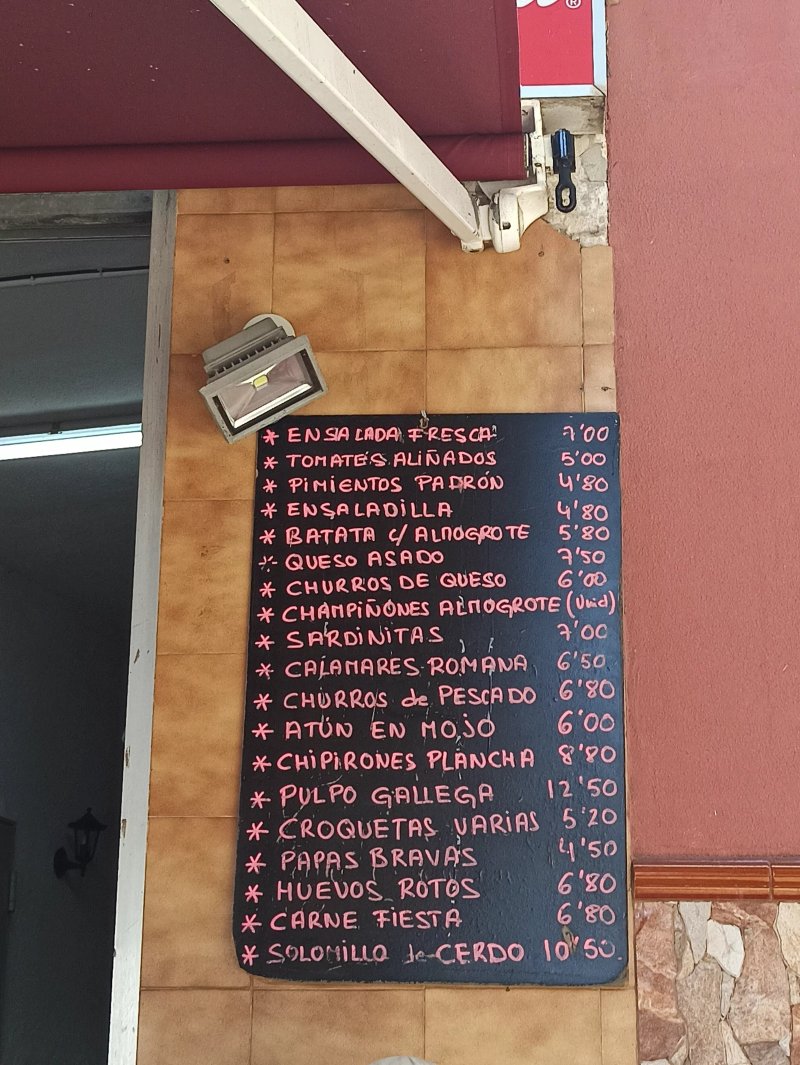 * ENSALADA FRESCA 7'00
* TOMATES ALIÑADOS 5'00
* PIMIENTOS PADRÓN 4'80
* ENSALADILLA 4'80
* BATATA c/ ALMOGROTE 5'80
* QUESO ASADO 7'50
* CHURROS DE QUESO 6'00
* CHAMPIÑONES ALMOGROTE (Unid)
* SARDINITAS 7'00
* CALAMARES ROMANA 6'50
* CHURROS de PESCADO 6'80
* ATÚN EN MOJO 6'00
* CHIPIRONES PLANCHA 8'80
* PULPO GALLEGA 12'50
* CROQUETAS VARIAS 5'20
* PAPAS BRAVAS 4'50
* HUEVOS ROTOS 6'80
* CARNE FIESTA 6'80
* SOLOMILLO de CERDO 10'50